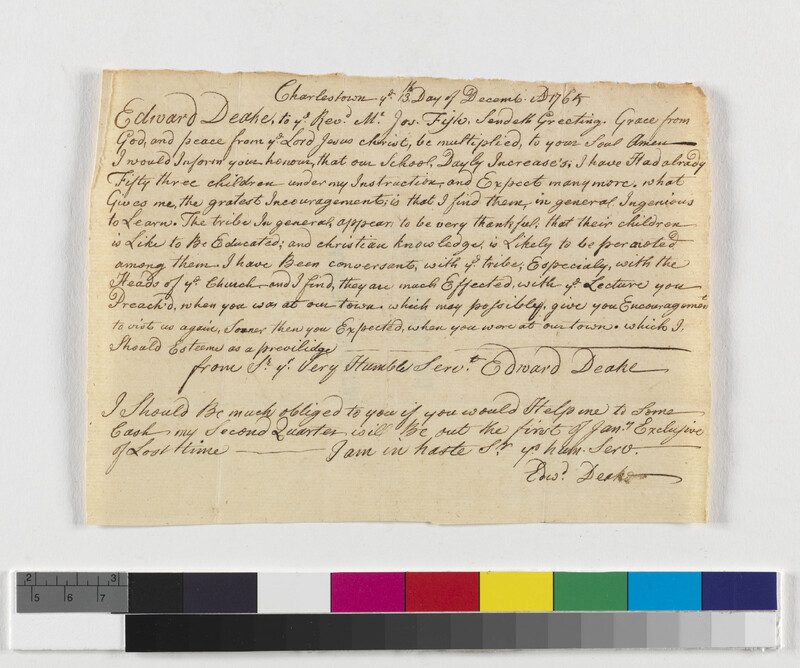 Charlestown yͤ 13.th Day of Decemb. AD 1765
Edward Deake, to yͤ Revd. Mr. Jos. Fish. Sendeth Greeting. Grace from
God, and peace from yͤ Lord Jesus christ, be multiplied, to your Soul Amen
I would Inform your honour, that our School, Dayly Increase's; I have Had alrady
Fifty three children under my Instruction, and Expect many more. what
Gives me, the gratest Incouragement; is that I find them, in general, Ingenious
to Learn. The tribe In general, appear, to be very thankful, that their children
is Like to Be Educated; and christian knowledge, is Likely to be promoted
among them. I have Been conversant, with yͤ tribe; Especialy, with the
Heads of yͤ Church, and I find, they are much Effected, with yͤ Lecture you
Preach'd, when you was at our town. which may possibly, give you Encouragement
to visit us again, Sooner then you Expected, when you were at our town. which I.
Should Esteem as a previlidge
from Sr. yr. Very Humble Servt. Edward Deake
I Should Be much obliged to you if you would Help me to Some
Cash my Second Quarter will Be out the first of Jany. Exclusive
of Lost time I am in haste Sr. yr. hum. Serv.
Edwd. Deake
2 3
5 6 7